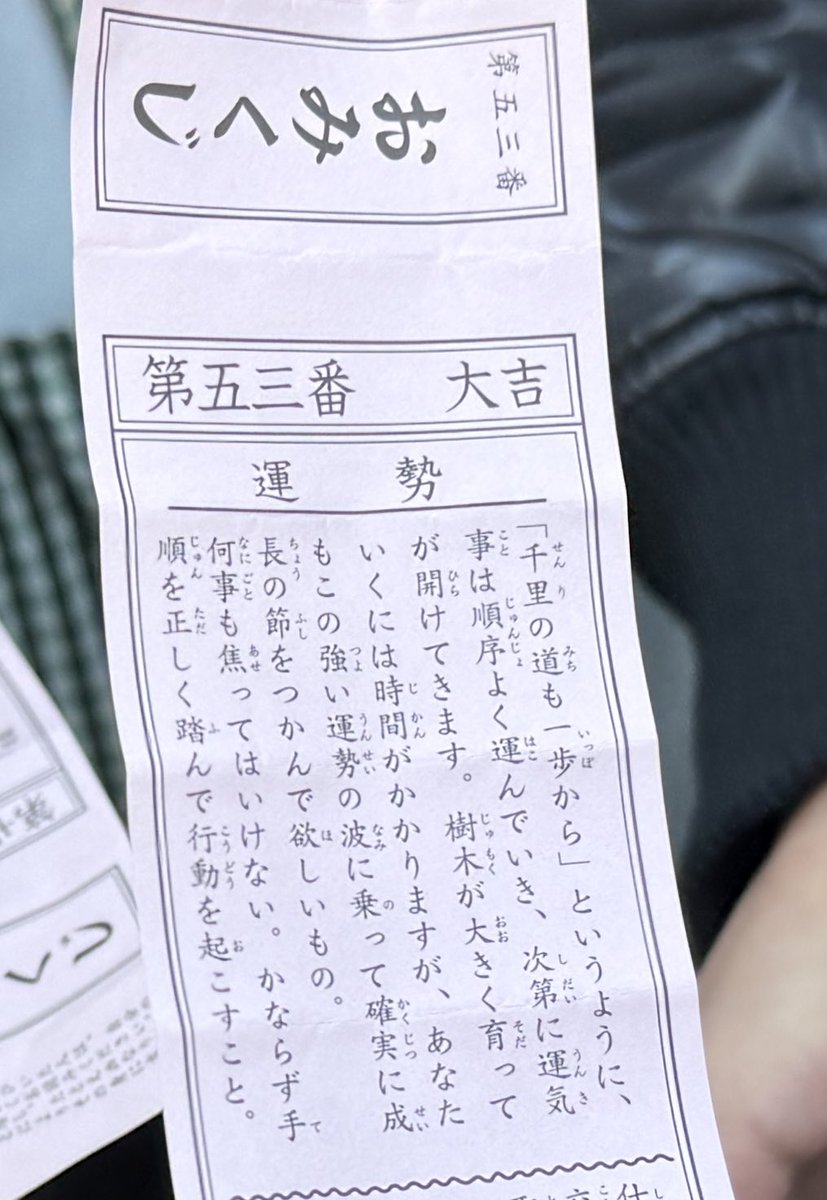 第五三番
おみくじ
第五三番　大吉
運勢
「千里の道も一歩から」というように、
事は順序よく運んでいき、次第に運気
が開けてきます。樹木が大きく育って
いくには時間がかかりますが、あなた
もこの強い運勢の波に乗って確実に成
長の節をつかんで欲しいもの。
何事も焦ってはいけない。かならず手
順を正しく踏んで行動を起こすこと。